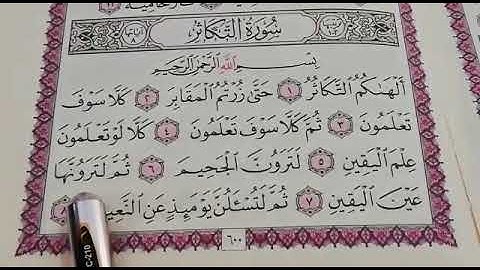 سُورَةُ التَّكَاثُرِ
بِسْمِ اللَّهِ الرَّحْمَٰنِ الرَّحِيمِ
أَلْهَىٰكُمُ التَّكَاثُرُ ١ حَتَّىٰ زُرْتُمُ الْمَقَابِرَ ٢ كَلَّا سَوْفَ
تَعْلَمُونَ ٣ ثُمَّ كَلَّا سَوْفَ تَعْلَمُونَ ٤ كَلَّا لَوْ تَعْلَمُونَ
عِلْمَ الْيَقِينِ ٥ لَتَرَوُنَّ الْجَحِيمَ ٦ ثُمَّ لَتَرَوُنَّهَا
عَيْنَ الْيَقِينِ ٧ ثُمَّ لَتُسْـَٔلُنَّ يَوْمَئِذٍ عَنِ النَّعِيمِ ٨
٦٠٠
C-210